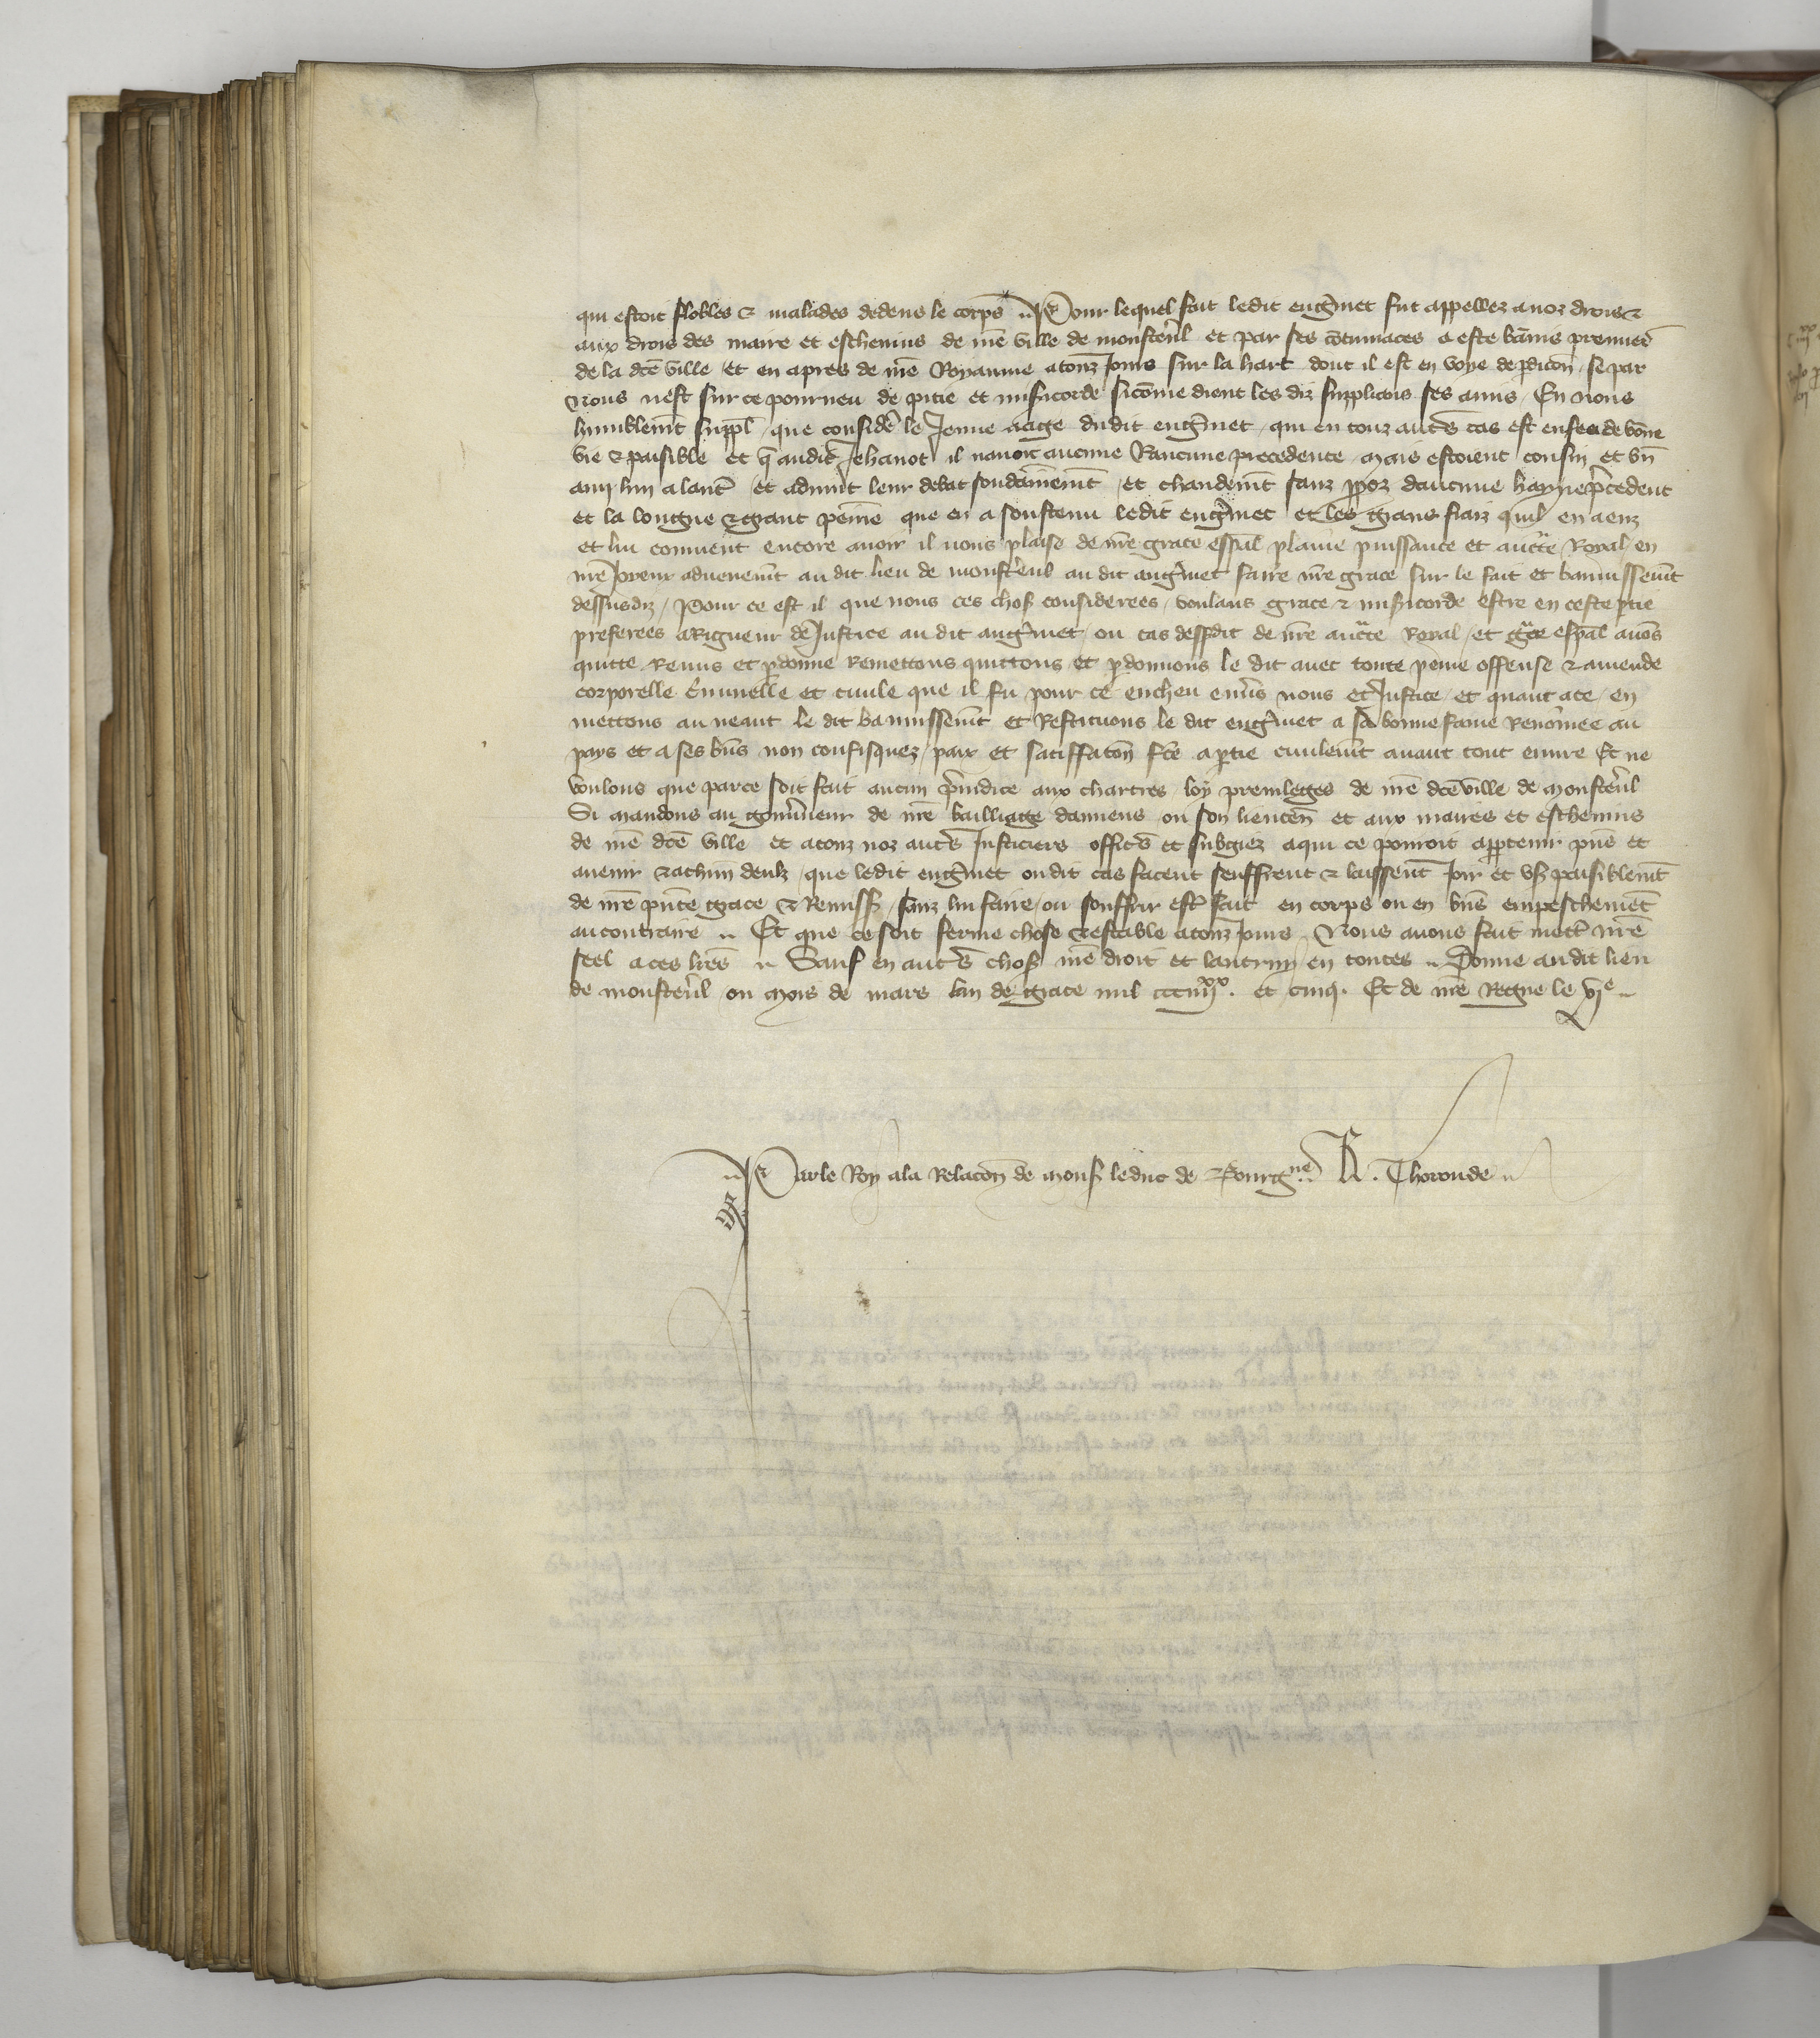 qui estoit flobles et malades dedens le corps Pour lequel fait ledit eng̃met fut appellez a noz drois et
aux drois des maire et escheuins de nr̃e ville de monster̃l et par ses cõtumaces a este bãnis premier̃
de la dcẽ ville et en apres de nr̃e Royaume a touz Jours sur la hart dont il est en voye de pdicõn se par
Nous nest sur ce pourueu de pitie et misicorde si cõme dient les diz supplicãs ses amis En nous
humblemt̃ suppl̃ que consider̃ le Jeune aage dudit eng̃met qui en touz autr̃s cas est enfes de bõne
vie et paisible et q̃ audit Jehanot il nauoit aucune Rancune precedente mais estoient cousin et vñ
ami lun a lautr̃ et aduint leur debat soudainemt̃ et chaudemt̃ sanz ppoz daucune hayne p̃cedent
et la longue et grant peinne que en a soustenu ledit eng̃met et les grans fraiz quil en a euz
et lui conuient encore auoir il nous plaise de nr̃e grace esp̃al plaine puissance et auctte Royal en
nr̃e Joyeux aduenemt̃ au dit lieu de monster̃ul au dit aug̃met faire nr̃e grace sur le fait et bannissemt̃
dessusdiz Pour ce est il que nous ces chos̃ considerees voulans grace et misicorde estre en ceste ptie
preferees a Rigueur de Justice au dit aug̃met ou cas dessdit de nr̃e auctte Royal et gr̃ce esp̃al auõs
quitte Remis et pdonne Remettons quittons et pdonnons le dit auec toute peine offense et amende
corporelle C̃iminelle et ciuile que il fu pour ce encheu enu̾s nous et Justice et quant a ce en
mettons au neant le dit bannissemt̃ et Restituons le dit eng̃met a sa bonne fame Renom̃ee au
pays et a ses bñs non confisquez paix et satiffatõn fcẽ a ptie ciuilemt̃ auant tout euure Et ne
voulons que par ce soit fait aucun p̃iudice aux chartres loy preuileges de nr̃e dcẽ ville de monster̃l
Si mandons au gouu̾neur de nr̃e bailliage damiens ou son lieuten̄ et aux maires et escheuins
de nr̃e dcẽ ville et a touz noz autr̃s Justiciers officr̃s et subgiez a qui ce pourroit apptenir pñs et
auenir et a chũn deulx que ledit eng̃met ou dit cas facent seuffrent et laissent Joir et vs̃ paisiblemt̃
de nr̃e pñte grace et Remiss̃ sanz lui faire ou souffrir estr̃ fait en corps ou en bñs empeschemẽt
au contraire Et que ce soit ferme chose et estable a touz Jours Nous auons fait mettr̃ nr̃e
seel a ces lr̃es Sauf en autr̃s chos̃ nr̃e droit et lautruy en toutes Donne au dit lieu
de monster̃l ou mois de mars lan de grace mil ccciiijxx. et cinq. Et de nr̃e Regne le vje
Par le Roy a la Relacõn de mons̃ le duc de Bourgne. R. Thoronde